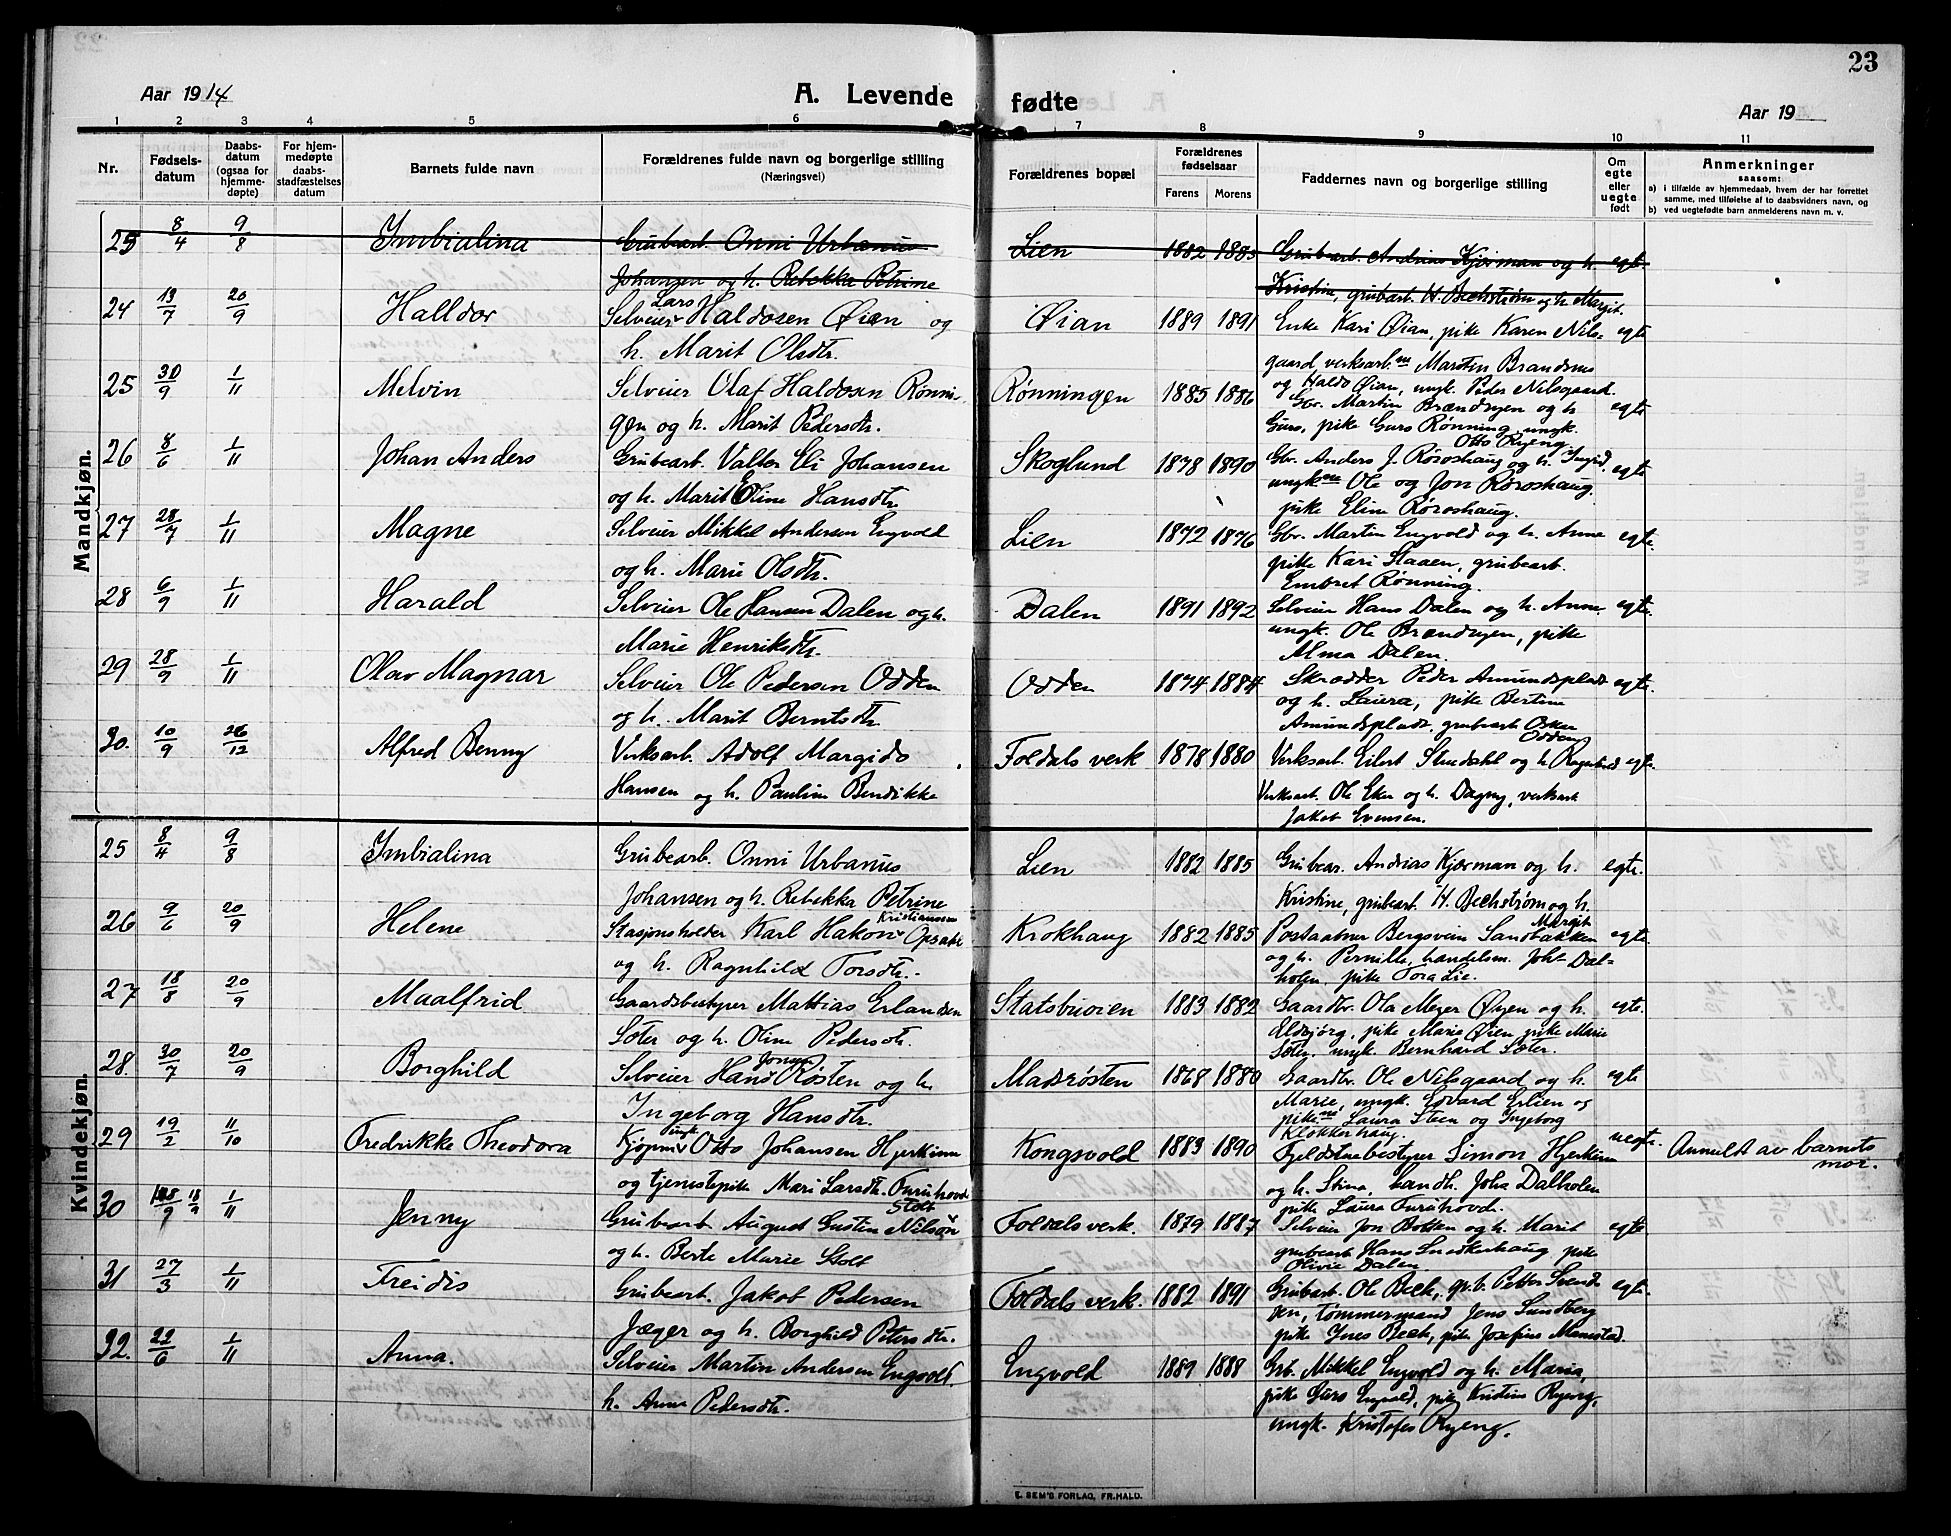 23
Aar 1914
A. Levende fødte
Aar 19
1 2 3 4 5 6 7 8 9 10 11
Nr.
Fødsels-
datum
Daabs-
datum
(ogsaa for
hjemme-
døpte)
For hjem-
medøpte
daabs-
stadfæstelses
datum
Barnets fulde navn
Forældrenes fulde navn og borgerlige stilling
(Næringsvei)
Forældrenes bopæl
Forældrenes
fødselsaar
Farens Morens
Faddernes navn og borgerlige stilling
Om
egte
eller
uegte
født
Anmerkninger
saasom:
a) i tilfælde av hjemmedaab, hvem der har forrettet
samme, med tilføielse af to daabsvidners navn, og
b) ved uegtefødte barn anmelderens navn m. v.
Mandkjøn.
25 8/4 9/8 Imbialina Grubearb. Onni Urbanus Lien 1882 1885 Grubearb. Andrias Kjørman og h. egte.
Johansen og h. Rebekka Petrine Kristine, grubearb. H. Bechstrøm og h. Margit.
24 13/7 20/9 Halldor Selveier Lars Haldosen Øian og Øian 1889 1891 Enke Kari Øian, pike Karen Nils- egte
h. Marit Olsdtr. gaard, verksarb. Martin Brandsnes
og Haldo Øian, ungk. Peder Nilsgaard.
25 30/9 1/11 Melvin Selveier Olaf Haldosen Rønnin- Rønningen 1885 1886 Gbr. Martin Brændryen og h. egte
gen og h. Marit Pedersdtr. Guro, pike Guro Rønning, ungk.
Otto Ryeng.
26 8/6 1/11 Johan Anders Grubearb. Valter Eli Johansen Skoglund 1878 1890 Gbr. Anders J. Røroshaug og h. Ingrid, egte
og h. Marit Oline Hansdtr. ungk. Ole og Jon Røroshaug,
pike Eline Røroshaug.
27 28/7 1/11 Magne Selveier Mikkel Andersen Engvold Lien 1872 1876 Gbr. Martin Engvold og h. Anne egte.
og h. Marie Olsdtr. pike Kari Staaen, grubearb.
Embret Rønning.
28 6/9 1/11 Harald Selveier Ole Hansen Dalen og h. Dalen 1891 1892 Selveier Hans Dalen og h. Anne, egte.
Marie Henriksdtr. ungk. Ole Brændryen, pike
Alma Dalen.
29 28/9 1/11 Olav Magnar Selveier Ole Pedersen Odden Odden 1874 1884 Skrædder Peder Amundsplads egte.
og h. Marit Berntsdtr. og h. Laura, pike Bertine
Amundsplads, grubearb. Oskar
Odden
30. 10/9 26/12 Alfred Benny Verksarb. Adolf Margido Foldals verk 1878 1880 Verksarb. Eilert Stendahl og h. Ragnhild egte.
Hansen og h. Pauline Bendikke Verksarb. Ole Eker og h. Dagny, verksarb.
Jakob Evensen.
Kvindekjøn.
25 8/4 9/8 Imbialina Grubearb. Onni Urbanus Lien 1882 1885 Grubear. Andrias Kjørman og h. egte.
Johansen og h. Rebekka Petrine Kristine, grubearb. H. Bechstrøm og h.
Margit
26 9/6 20/9 Helene Stasjonsholder Karl Hakon Kristiansen Opsahl Krokhaug 1882 1885 Postaabner Bergsvein Sandbakken egte.
og h. Ragnhild Torsdtr. og h. Pernille, handelsm. Joh. Dal-
holen, pike Tora Lie.
27 18/8 20/9 Maalfrid Gaardsbestyrer Mattias Erlandsen Statsbuøien 1883 1882 Gaardbr. Ola Meyer Øyen og h. egte.
Sæter og h. Oline Pedersdtr. Eldbjørg, pike Marie Øien, pike Marie
Sæter, ungk. Bernhard Sæter.
28. 30/7 20/9 Borghild Selveier Hans Jonsen Røsten og h. Madsrøsten 1868 1880 Gaardbr. Ole Nilsgaard og h. egte
Ingeborg Hansdtr. Marie, ungk. Edvard Erlien og
pikene Laura Steen og Ingeborg
Klokkerhaug.
29 19/2 11/10 Fredrikke Theodora Kjøpm. ungk. Otto Johansen Hjerkinn Kongsvold 1883 1890 Fjeldstuebestyrer Simon Hjerkinn uegte. Anmeldt av barnets
mor.
og tjenestepike Mari Larsdtr. Furuhovde og h. Stina, handh. Joha Dalholen
pike Laura Furuhovde.
30 18/9 1/11 Jenny Grubearb. August Gustin Nilsen Stolt Foldals verk. 1879 1887 Selveier Jon Bakken og h. Marit egte
og h. Berte Marie Stolt grubearb. Hans Snedkerhaug, pike
Olivie Dalen
31 27/3 1/11 Freidis Grubearb. Jakob Pedersen Foldals verk. 1882 1891 Grubearb. Ole Beck, gr.b. Petter Svend- egte.
Jæger og h. Borghild Petersdtr. sen, tømmermand Jens Sundberg
pike Ines Beck, pike Josefine Memstad.
32. 22/6 1/11 Anna. Selveier Martin Andersen Engvold. Engvold 1889 1888 Grb. Mikkel Engvold og h. Maria,
h. Anne Pedersdtr. pike Guro Engvold, pike Kristine Ryeng,
ungk. Kristofer Ryeng.
E. SEM'S FORLAG, FR.HALD.